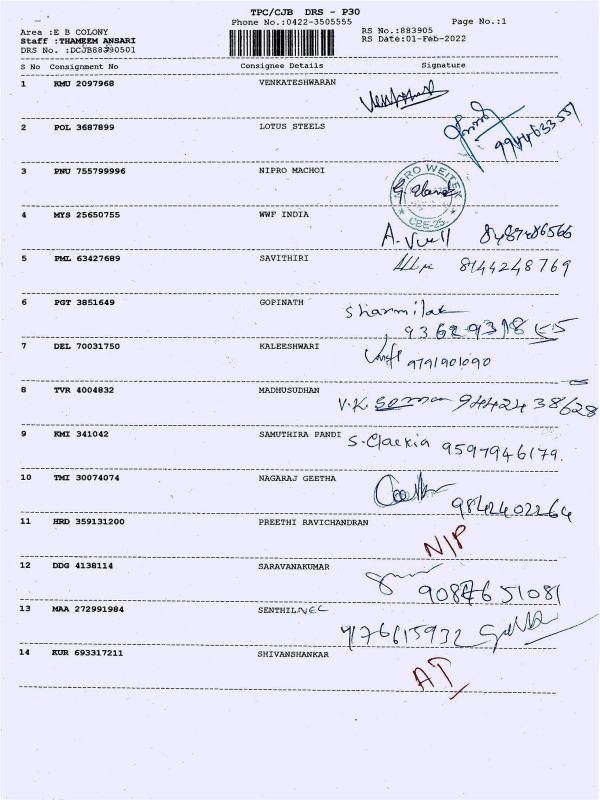 TPC/CJB DRS - P30
Phone No.:0422-3505555 Page No.:1
Area :E B COLONY RS No.:883905
Staff :THAMEEM ANSARI RS Date:01-Feb-2022
DRS No. :DCJB88390501
S No Consignment No Consignee Details Signature
1 KMU 2097968 VENKATESHWARAN
2 POL 3687899 LOTUS STEELS 9944633557
3 PNU 755799996 NIPRO MACHOI
CBE-25
4 MYS 25650755 WWF INDIA 8487486566
5 PML 63427689 SAVITHIRI 8144248769
6 PGT 3851649 GOPINATH Sharmila
7 DEL 70031750 KALEESHWARI 9791901090
8 TVR 4004832 MADHUSUDHAN V.K. 9442438628
9 KMI 341042 SAMUTHIRA PANDI 9597946179.
10 TMI 30074074 NAGARAJ GEETHA 9842402264
11 HRD 359131200 PREETHI RAVICHANDRAN N/P
12 DDG 4138114 SARAVANAKUMAR 9087651081
13 MAA 272991984 SENTHILNEL 9176615932
14 KUR 693317211 SHIVANSHANKAR AT